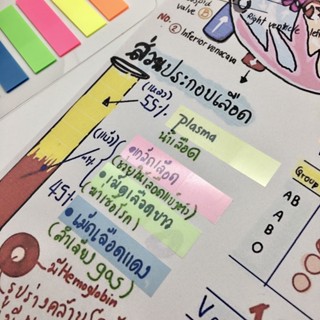 valve
NO.
② Inferior venacava
Right ventricle
ส่วนประกอบเลือด
(เหลว)
55%
plasma
น้ำเลือด
(แข็ง)
เกล็ดเลือด
(ช่วยให้เลือดแข็งตัว)
•เม็ดเลือดขาว
(ฆ่าเชื้อโรค)
45%
•เม็ดเลือดแดง
(ลำเลียง gas)
มี Hemoglobin
รูปร่างคล้าย
Group
AB
A
B
O